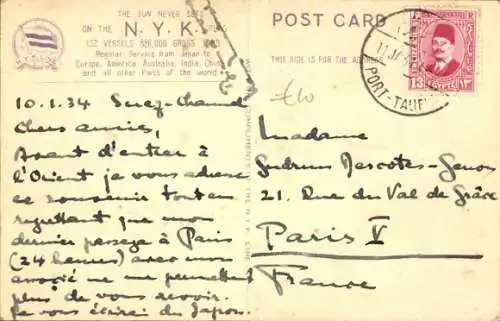 THE SUN NEVER SETS
ON THE N.Y.K.
132 VESSELS GROSS TONS
Regular Service from Japan to
Europe, America, Australia, India, China
and all other Parts of the world
POST CARD
THIS SIDE IS FOR THE ADDRESS
PORT-TAUFI
13 EGYPTE
COMPLIMENTS THE N.Y.K. LINE
10.1.34 Suez-Channel
Chers amies,
Avant d'entrer à
l'Orient je vous adresse
ce souvenir tout en
regrettant que mon
dernier passage à Paris
(24 heures) avec mon
associé ne me permettait
plus de vous revoir.
Je vous écrirai du Japon.
Madame
Gudrun
21. Rue du Val de Grâce
Paris V
France